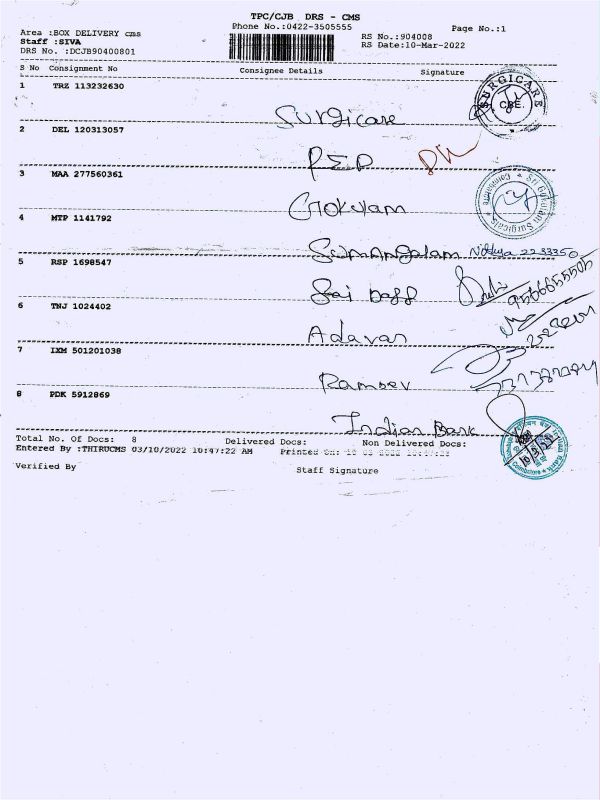 TPC/CJB DRS - CMS
Phone No.:0422-3505555
Page No.:1
Area :BOX DELIVERY cms
RS No.:904008
Staff :SIVA
RS Date:10-Mar-2022
DRS No. :DCJB90400801
S No Consignment No Consignee Details Signature
1 TRZ 113232630
Surgicare
SURGICARE
CBE.
2 DEL 120313057
PSP
3 MAA 277560361
Gokulam
Sri Gokulam Surgicals
Coimbatore
4 MTP 1141792
Sumangalam Nithya 2233350
5 RSP 1698547
Sai Dass
9566655505
6 TNJ 1024402
Adavan
7 IXM 501201038
Ramdev
8 PDK 5912869
Indian Bank
Total No. Of Docs: 8 Delivered Docs: Non Delivered Docs:
Entered By :THIRUCMS 03/10/2022 10:47:22 AM Printed On:
Verified By
Staff Signature